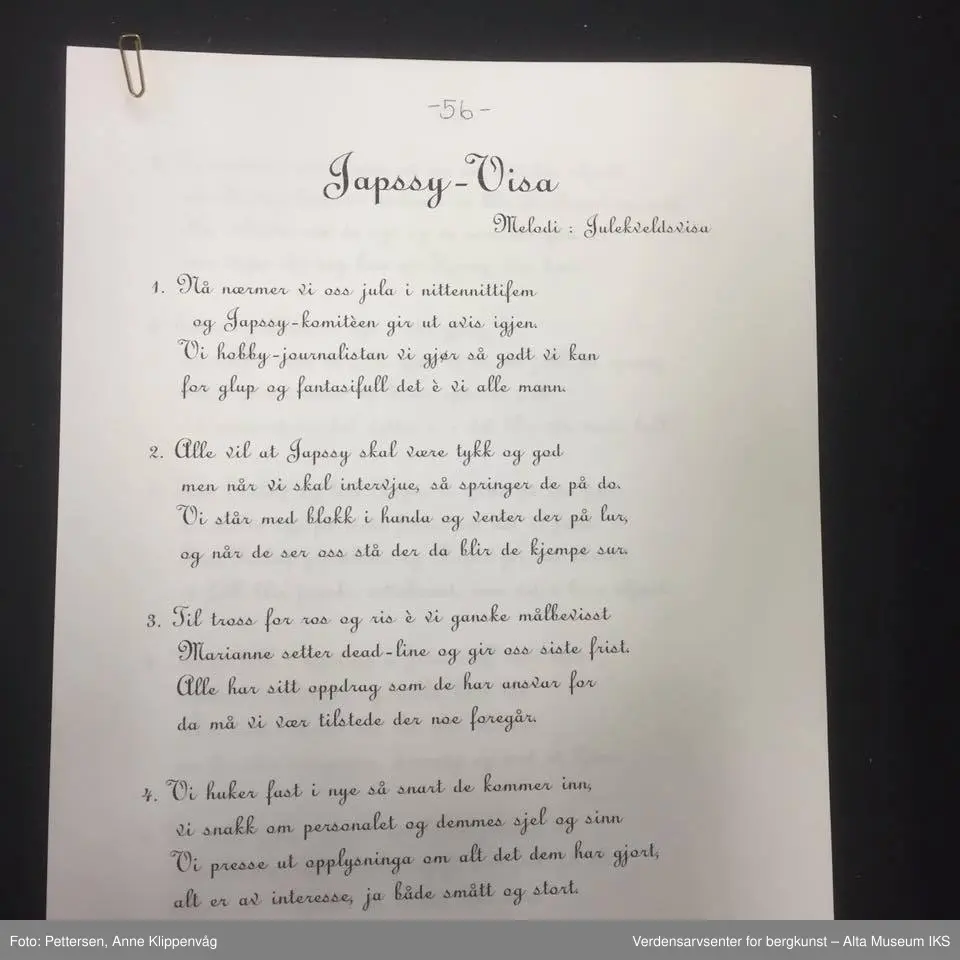 -56-
Japssy-Visa
Melodi : Julekveldsvisa
1. Nå nærmer vi oss jula i nittennittifem
og Japssy-komitèen gir ut avis igjen.
Vi hobby-journalistan vi gjør så godt vi kan
for glup og fantasifull det è vi alle mann.
2. Alle vil at Japssy skal være tykk og god
men når vi skal intervjue, så springer de på do.
Vi står med blokk i handa og venter der på lur,
og når de ser oss stå der da blir de kjempe sur.
3. Til tross for ros og ris è vi ganske målbevisst
Marianne setter dead-line og gir oss siste frist.
Alle har sitt oppdrag som de har ansvar for
da må vi vær tilstede der noe foregår.
4. Vi huker fast i nye så snart de kommer inn,
vi snakk om personalet og demmes sjel og sinn
Vi presse ut opplysninga om alt det dem har gjort,
alt er av interesse, ja både smått og stort.
Foto: Pettersen, Anne Klippenvåg
Verdensarvsenter for bergkunst – Alta Museum IKS